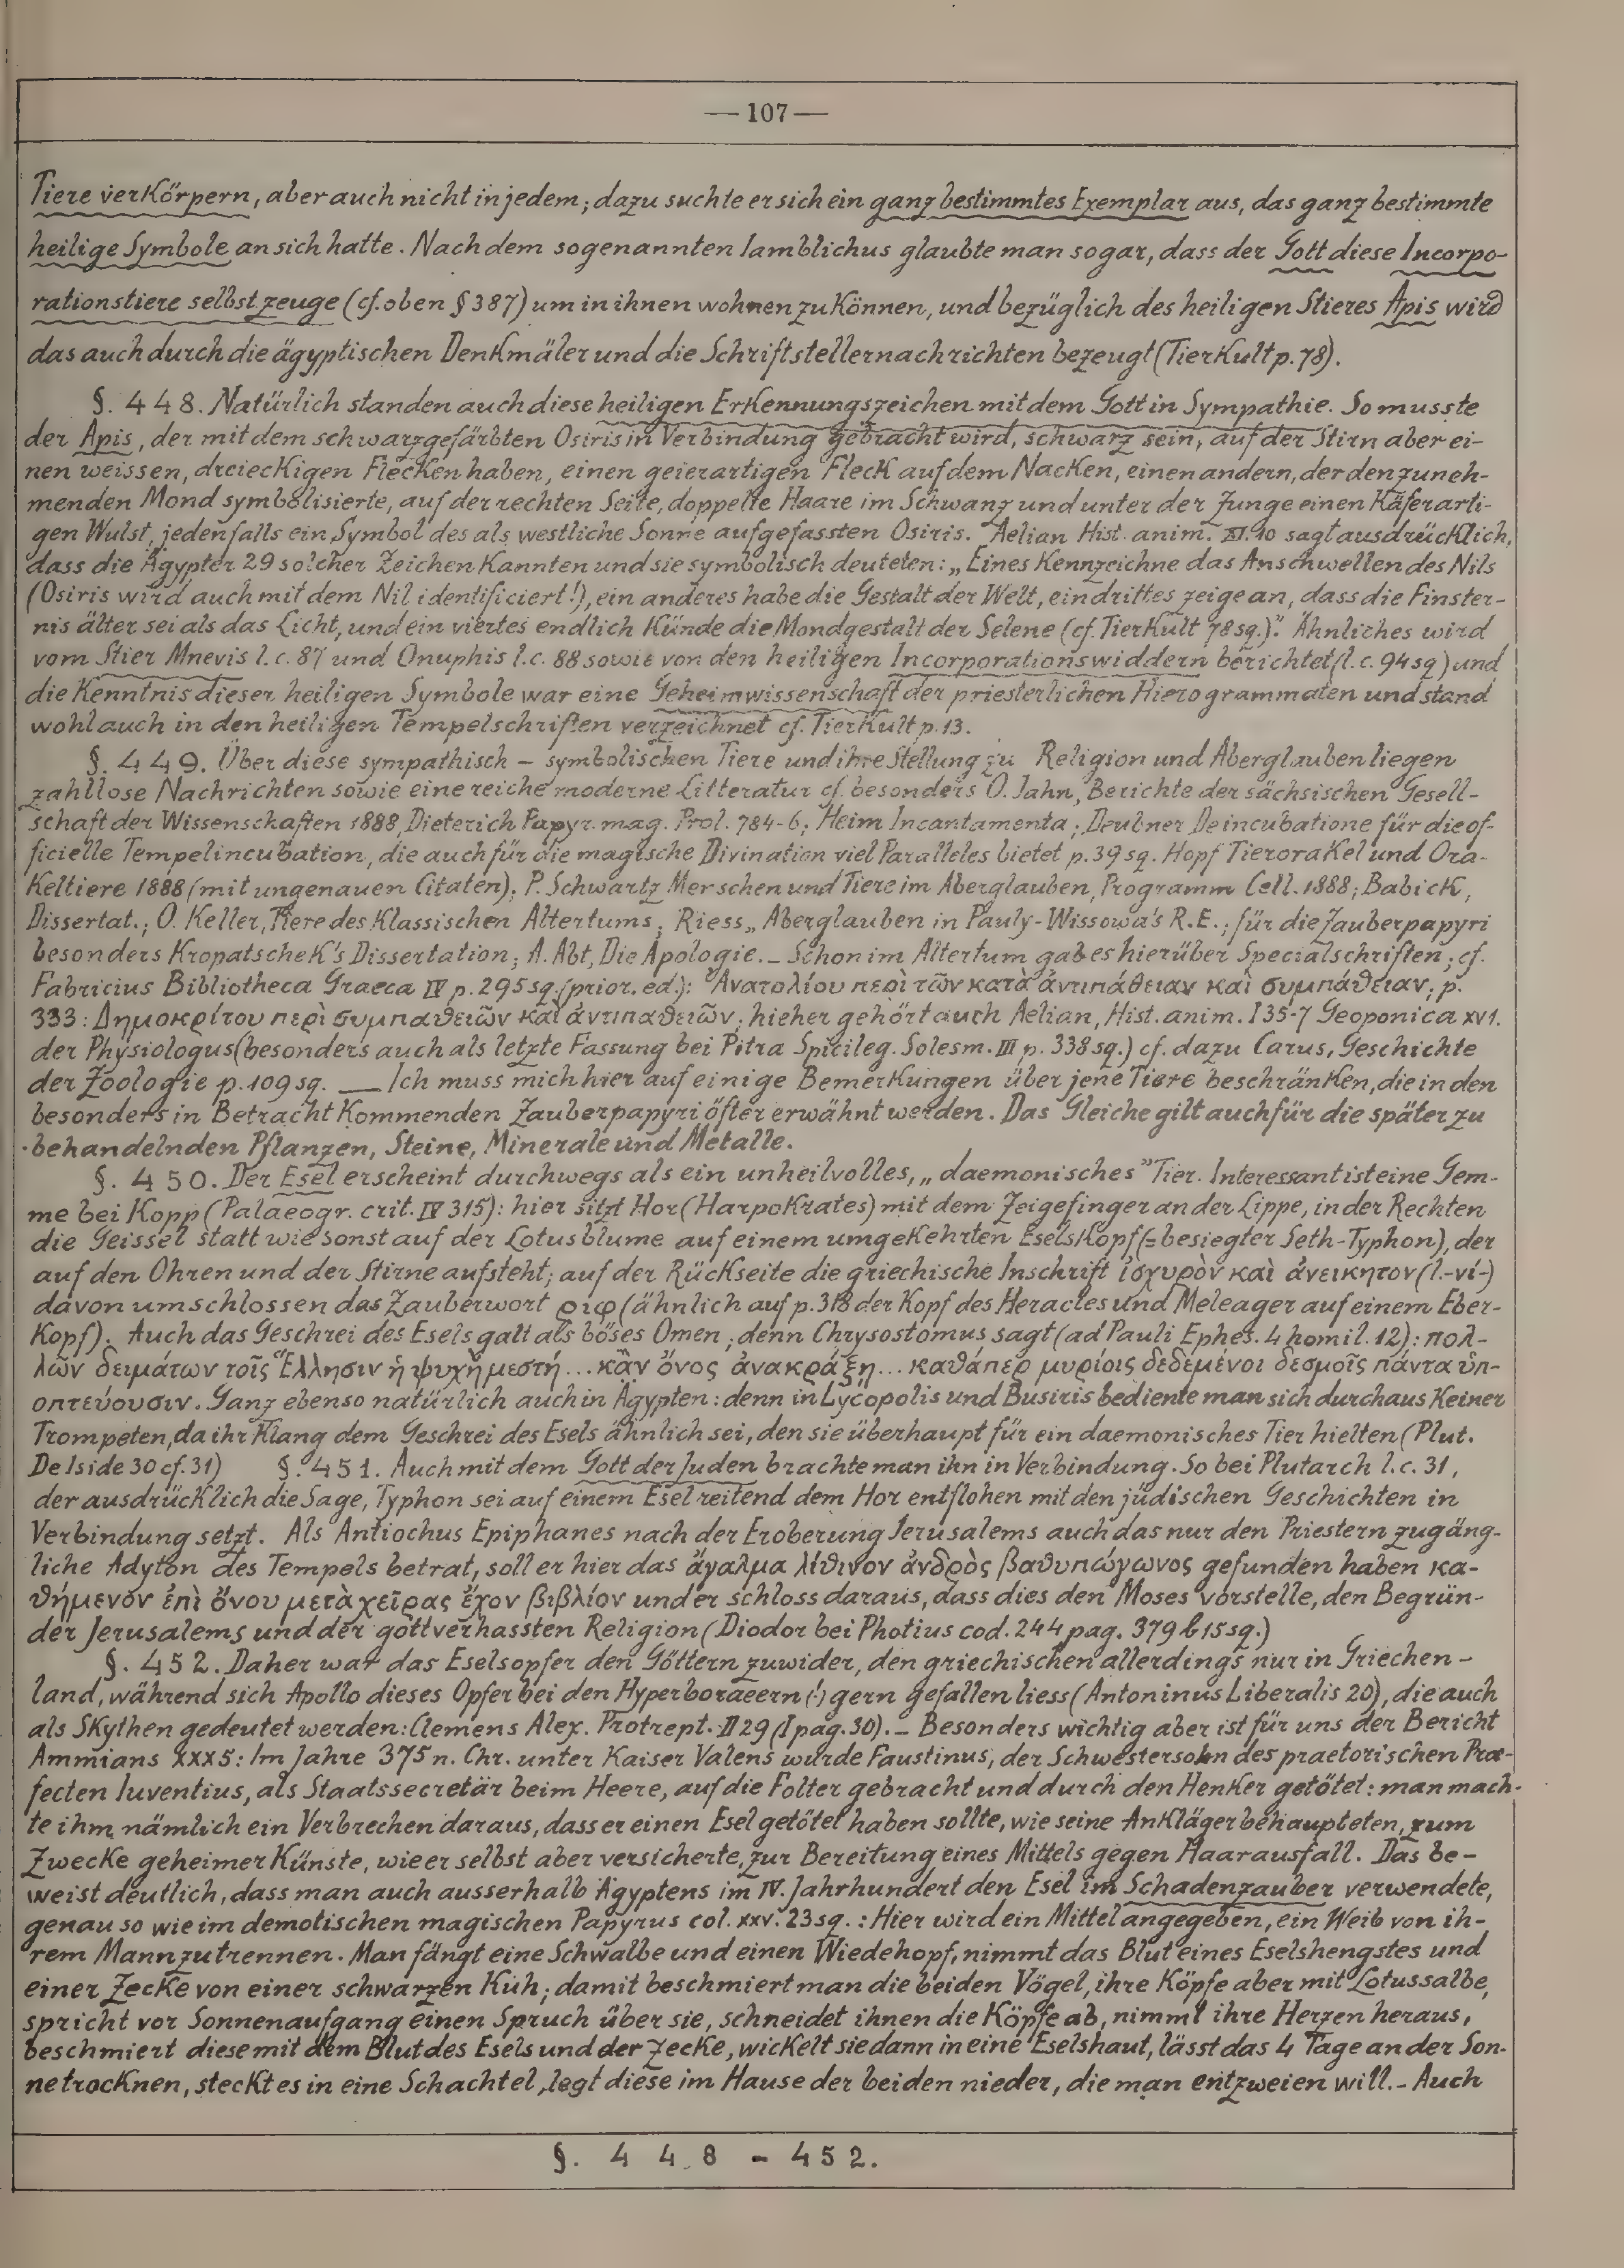 — 107 —
Tiere verkörpern, aber auch nicht in jedem; dazu suchte er sich ein ganz bestimmtes Exemplar aus, das ganz bestimmte
heilige Symbole an sich hatte. Nach dem sogenannten Iamblichus glaubte man sogar, dass der Gott diese Incorpo-
rationstiere selbst zeuge (cf. oben § 387) um in ihnen wohnen zu können, und bezüglich des heiligen Stieres Apis wird
das auch durch die ägyptischen Denkmäler und die Schriftstellernachrichten bezeugt (Tierkult p. 78).
§. 448. Natürlich standen auch diese heiligen Erkennungszeichen mit dem Gott in Sympathie. So musste
der Apis, der mit dem schwarzgefärbten Osiris in Verbindung gebracht wird, schwarz sein, auf der Stirn aber ei-
nen weissen, dreieckigen Flecken haben, einen geierartigen Fleck auf dem Nacken, einen andern, der den zuneh-
menden Mond symbolisierte, auf der rechten Seite, doppelte Haare im Schwanz und unter der Zunge einen Käferarti-
gen Wulst, jedenfalls ein Symbol des als westliche Sonne aufgefassten Osiris. Aelian Hist. anim. XI. 10 sagt ausdrücklich,
dass die Ägypter 29 solcher Zeichen kannten und sie symbolisch deuteten: „Eines Kennzeichne das Anschwellen des Nils
(Osiris wird auch mit dem Nil identificiert!), ein anderes habe die Gestalt der Welt, ein drittes zeige an, dass die Finster-
nis älter sei als das Licht, und ein viertes endlich Künde die Mondgestalt der Selene (cf. Tierkult 78 sq.)." Ähnliches wird
vom Stier Mnevis l. c. 87 und Onuphis l. c. 88 sowie von den heiligen Incorporationswiddern berichtet (l. c. 94 sq) und
die Kenntnis dieser heiligen Symbole war eine Geheimwissenschaft der priesterlichen Hierogrammaten und stand
wohl auch in den heiligen Tempelschriften verzeichnet cf. Tierkult p. 13.
§. 449. Über diese sympathisch – symbolischen Tiere und ihre Stellung zu Religion und Aberglauben liegen
zahllose Nachrichten sowie eine reiche moderne Litteratur cf. besonders O. Jahn, Berichte der sächsischen Gesell-
schaft der Wissenschaften 1888, Dieterich Papyr. mag. Prol. 784-6; Heim Incantamenta; Deubner De incubatione für die of-
ficielle Tempelincubation, die auch für die magische Divination viel Paralleles bietet p. 39 sq. Hopf Tierorakel und Ora-
keltiere 1888 (mit ungenauen Citaten); P. Schwartz Menschen und Tiere im Aberglauben, Programm Cell. 1888; Babick,
Dissertat.; O. Keller, Tiere des Klassischen Altertums; Riess „Aberglauben in Pauly-Wissowa's R.E.; für die Zauberpapyri
besonders Kropatschek's Dissertation; A. Abt, Die Apologie. – Schon im Altertum gab es hierüber Specialschriften; cf.
Fabricius Bibliotheca Graeca IV p. 295 sq. (prior. ed.): Ἀνατολίου περὶ τῶν κατὰ ἀντιπάθειαν καὶ συμπάθειαν; p.
333: Δημοκρίτου περὶ συμπαθειῶν καὶ ἀντιπαθειῶν; hieher gehört auch Aelian, Hist. anim. I 35-7 Geoponica XV 1.
der Physiologus (besonders auch als letzte Fassung bei Pitra Spicileg. Solesm. III p. 338 sq.) cf. dazu Carus, Geschichte
der Zoologie p. 109 sq. — Ich muss mich hier auf einige Bemerkungen über jene Tiere beschränken, die in den
besonders in Betracht kommenden Zauberpapyri öfter erwähnt werden. Das Gleiche gilt auch für die später zu
behandelnden Pflanzen, Steine, Minerale und Metalle.
§. 450. Der Esel erscheint durchwegs als ein unheilvolles, „daemonisches" Tier. Interessant ist eine Gem-
me bei Kopp (Palaeogr. crit. IV 315): hier sitzt Hor (Harpokrates) mit dem Zeigefinger an der Lippe, in der Rechten
die Geissel statt wie sonst auf der Lotusblume auf einem umgekehrten Eselskopf (= besiegter Seth-Typhon), der
auf den Ohren und der Stirne aufsteht; auf der Rückseite die griechische Inschrift ἰσχυρὸν καὶ ἀνείκητον (l.-νί-)
davon umschlossen das Zauberwort ϙιφ (ähnlich auf p. 318 der Kopf des Heracles und Meleager auf einem Eber-
kopf). Auch das Geschrei des Esels galt als böses Omen; denn Chrysostomus sagt (ad Pauli Ephes. 4 homil. 12): πολ-
λῶν δειμάτων τοῖς Ἕλλησιν ἡ ψυχὴ μεστή... κἂν ὄνος ἀνακράξῃ... καθάπερ μυρίοις δεδεμένοι δεσμοῖς πάντα ὑπ-
οπτεύουσιν. Ganz ebenso natürlich auch in Ägypten: denn in Lycopolis und Busiris bediente man sich durchaus keiner
Trompeten, da ihr Klang dem Geschrei des Esels ähnlich sei, den sie überhaupt für ein daemonisches Tier hielten (Plut.
De Iside 30 cf. 31) §. 451. Auch mit dem Gott der Juden brachte man ihn in Verbindung. So bei Plutarch l. c. 31,
der ausdrücklich die Sage, Typhon sei auf einem Esel reitend dem Hor entflohen mit den jüdischen Geschichten in
Verbindung setzt. Als Antiochus Epiphanes nach der Eroberung Jerusalems auch das nur den Priestern zugäng-
liche Adyton des Tempels betrat, soll er hier das ἄγαλμα λίθινον ἀνδρὸς βαθυπώγωνος gefunden haben κα-
θήμενον ἐπὶ ὄνου μετὰ χεῖρας ἔχον βιβλίον und er schloss daraus, dass dies den Moses vorstelle, den Begrün-
der Jerusalems und der gottverhassten Religion (Diodor bei Photius cod. 244 pag. 379 b 15 sq.)
§. 452. Daher war das Eselsopfer den Göttern zuwider, den griechischen allerdings nur in Griechen-
land, während sich Apollo dieses Opfer bei den Hyperboraeern (!) gern gefallen liess (Antoninus Liberalis 20), die auch
als Skythen gedeutet werden: Clemens Alex. Protrept. II 29 (I pag. 30). – Besonders wichtig aber ist für uns der Bericht
Ammians XXX 5: Im Jahre 375 n. Chr. unter Kaiser Valens wurde Faustinus, der Schwestersohn des praetorischen Prae-
fecten Iuventius, als Staatssecretär beim Heere, auf die Folter gebracht und durch den Henker getötet: man mach-
te ihm nämlich ein Verbrechen daraus, dass er einen Esel getötet haben sollte, wie seine Ankläger behaupteten, zum
Zwecke geheimer Künste, wie er selbst aber versicherte, zur Bereitung eines Mittels gegen Haarausfall. Das be-
weist deutlich, dass man auch ausserhalb Ägyptens im IV. Jahrhundert den Esel im Schadenzauber verwendete,
genau so wie im demotischen magischen Papyrus col. XXV. 23 sq.: Hier wird ein Mittel angegeben, ein Weib von ih-
rem Mann zu trennen. Man fängt eine Schwalbe und einen Wiedehopf, nimmt das Blut eines Eselshengstes und
einer Zecke von einer schwarzen Kuh; damit beschmiert man die beiden Vögel, ihre Köpfe aber mit Lotussalbe,
spricht vor Sonnenaufgang einen Spruch über sie, schneidet ihnen die Köpfe ab, nimmt ihre Herzen heraus,
beschmiert diese mit dem Blut des Esels und der Zecke, wickelt sie dann in eine Eselshaut, lässt das 4 Tage an der Son-
ne trocknen, steckt es in eine Schachtel, legt diese im Hause der beiden nieder, die man entzweien will. – Auch
§. 448 - 452.